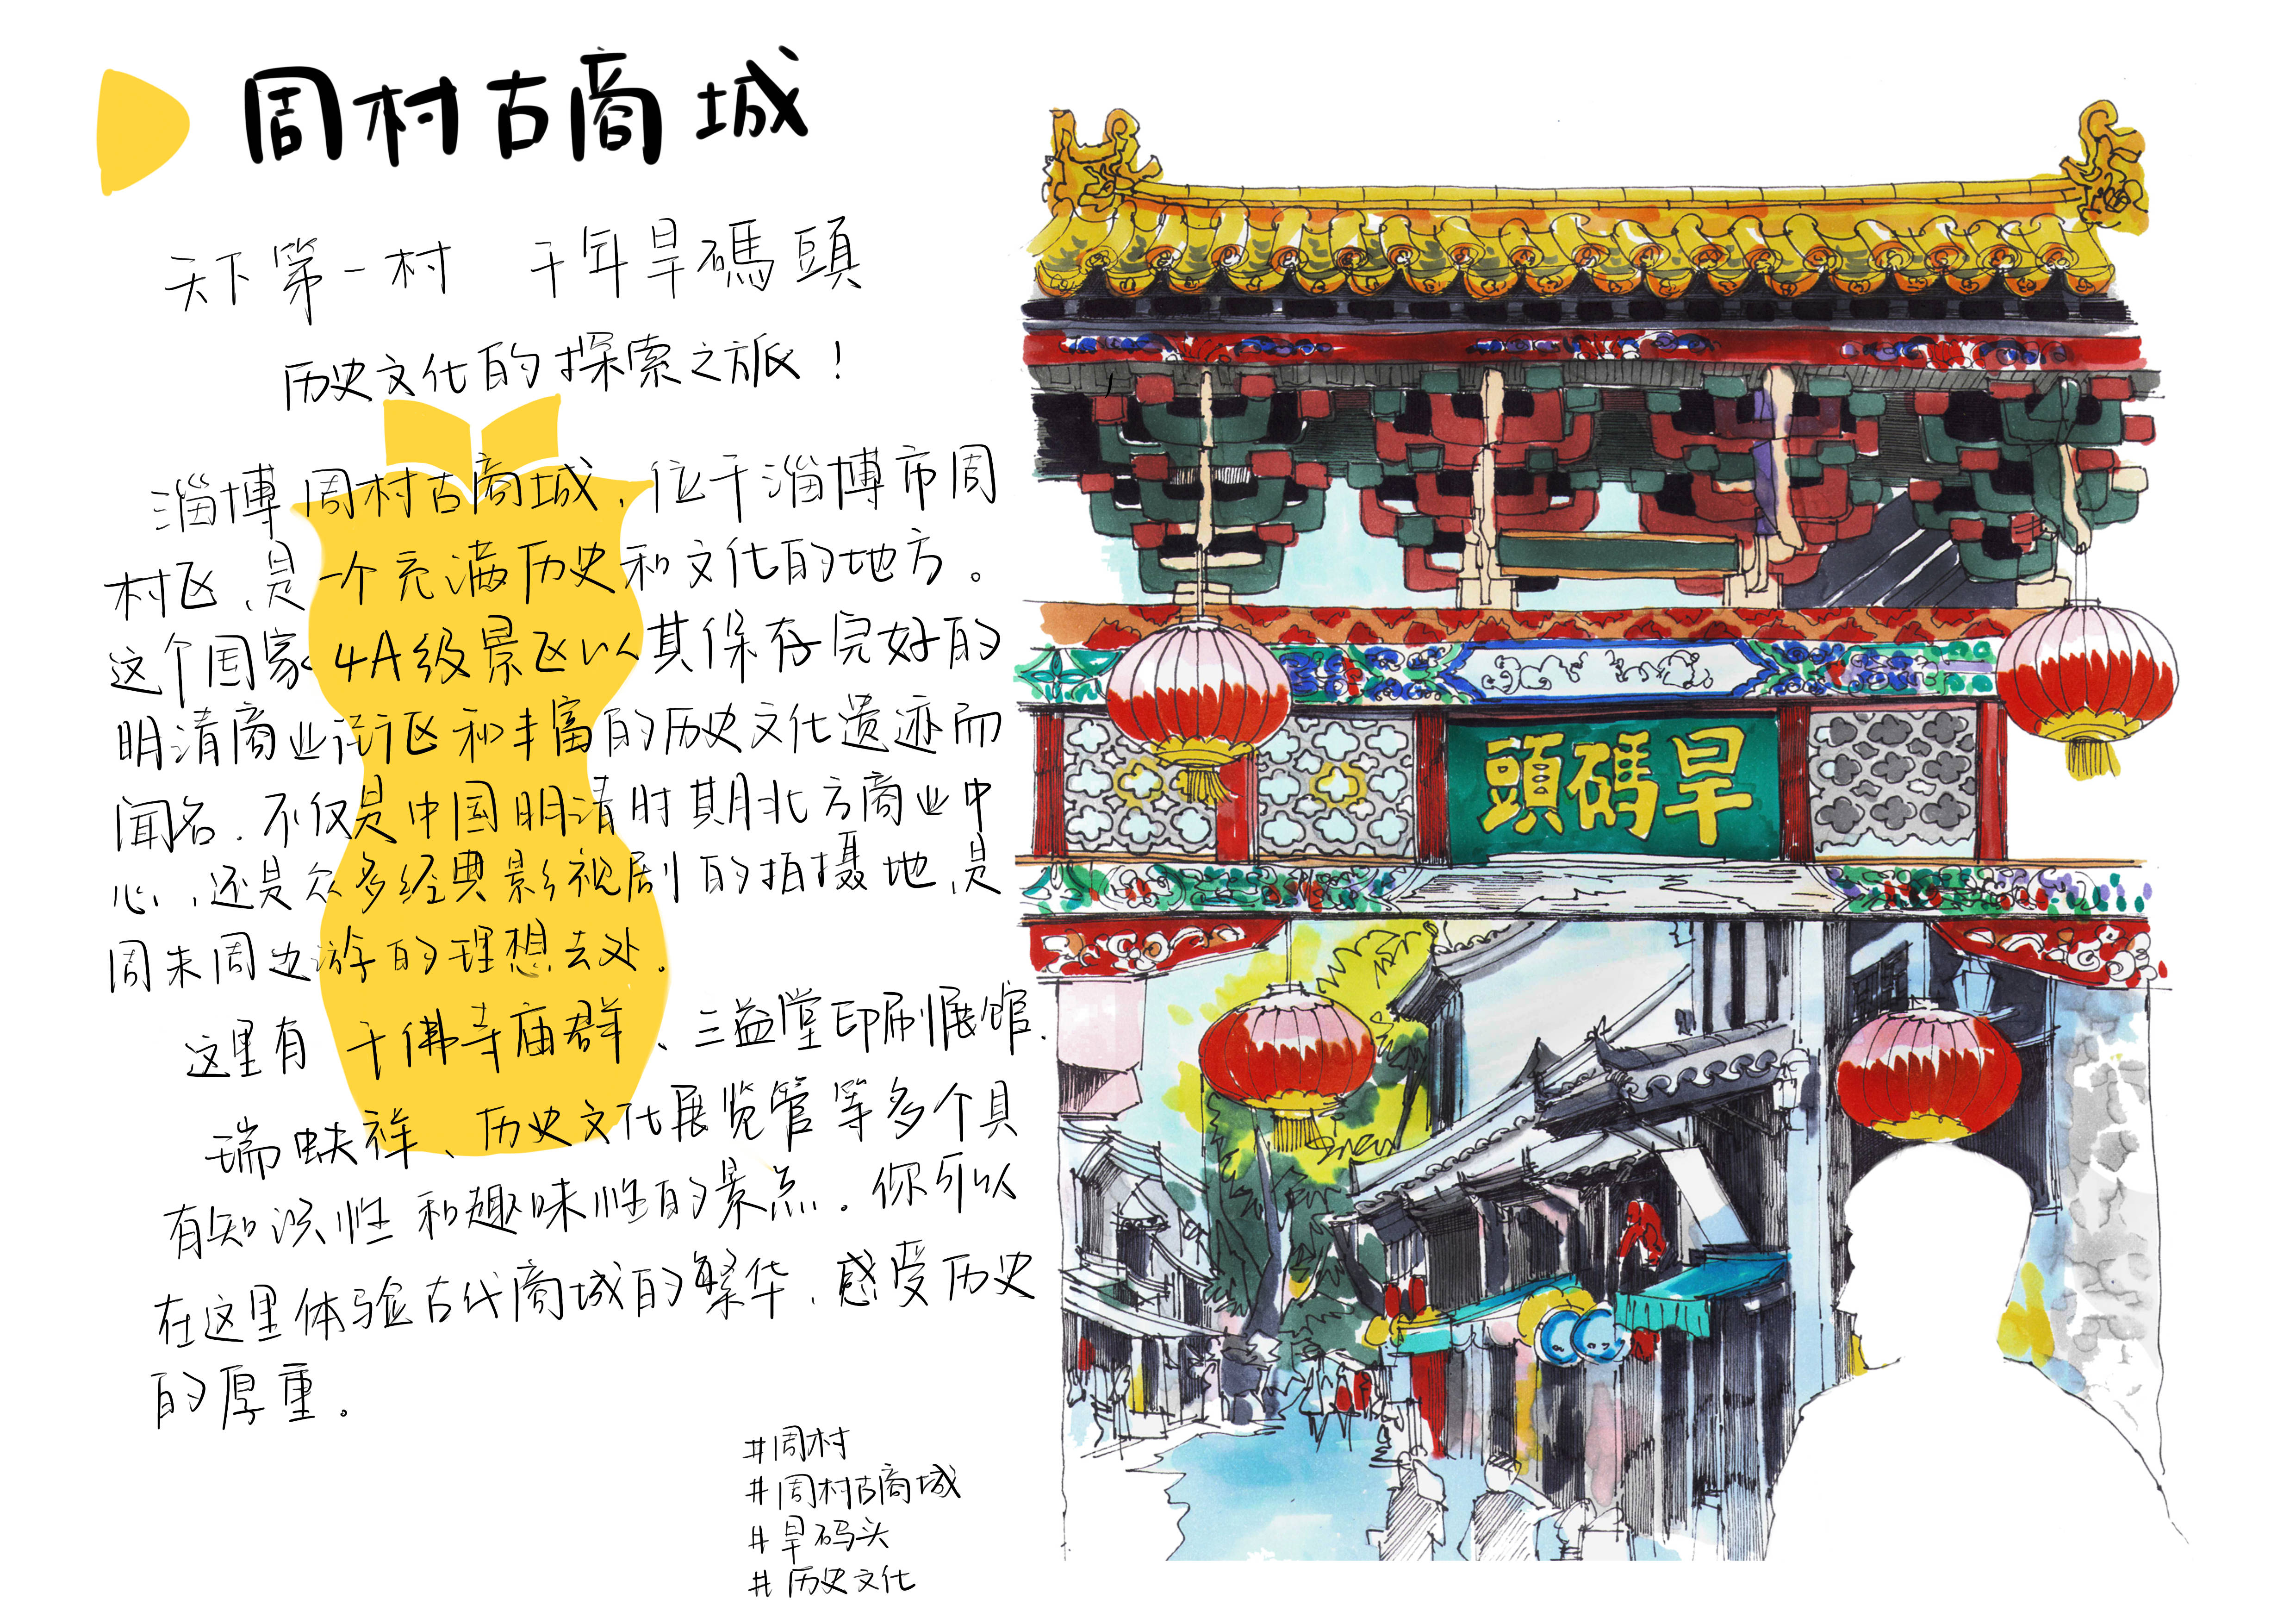 周村古商城
天下第一村 千年旱碼頭
历史文化的探索之旅！
淄博周村古商城，位于淄博市周
村区，是一个充满历史和文化的地方。
这个国家4A级景区以其保存完好的
明清商业街区和丰富的历史文化遗迹而
闻名，不仅是中国明清时期北方商业中
心，还是众多经典影视剧的拍摄地，是
周末周边游的理想去处。
这里有千佛寺庙群、三益堂印刷展馆、
瑞蚨祥、历史文化展览管等多个具
有知识性和趣味性的景点。你可以
在这里体验古代商城的繁华，感受历史
的厚重。
#周村
#周村古商城
#旱码头
#历史文化
頭碼旱